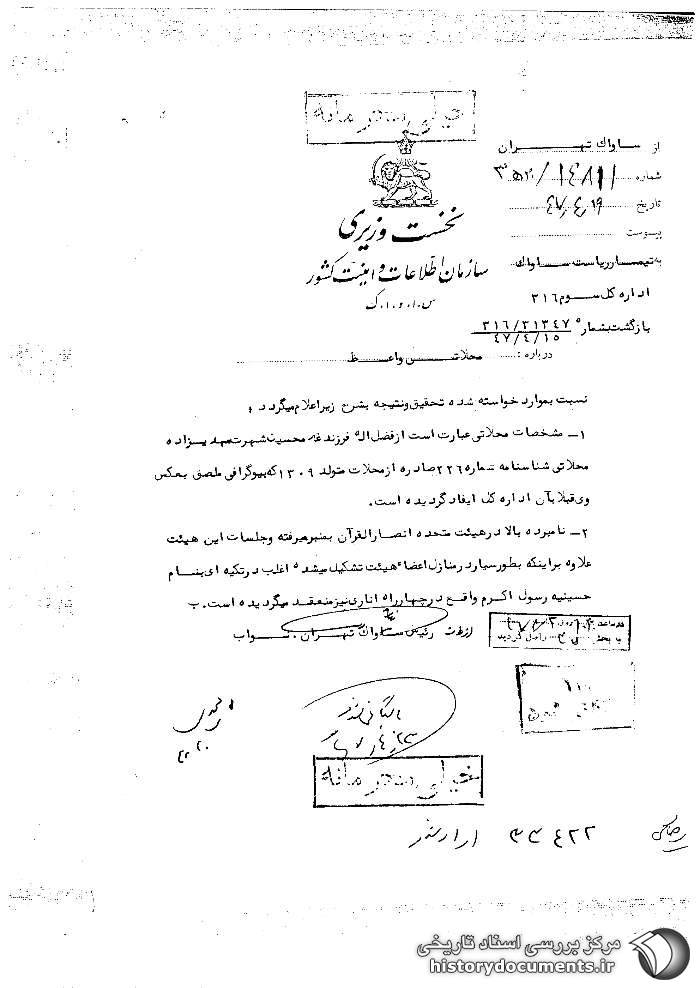 خیلی محرمانه
از ساواك تهـــران
شماره ۱٤۸۱۱/ ۲۰ ه‍ ۳
تاریخ ٤۷٫٤٫۱۹
پیوست
نخست وزیری
سازمان اطلاعات و امنیت کشور
س.ا.و.ا.ک
به تیمسار ریاست ساواك
اداره كل سوم ۳۱۶
بازگشت بشماره ۳۱۶/۳۱۳۴۷
۴۷/۴/۱۵
درباره : محلاتـــی واعـــظ
نسبت بموارد خواسته شده تحقیق و نتیجه بشرح زیر اعلام میگردد ؛
۱ـ مشخصات محلاتی عبارت است از فضل اله فرزند غلامحسین شهرت مهدیزاده
محلاتی شناسنامه شماره ۲۲۶ صادره از محلات متولد ۱۳۰۹ که بیوگرافی ملصق بعکس
وی قبلا بآن اداره کل ایفاد گردیده است .
۲ـ نامبرده بالا در هیئت متحده انصار القرآن بمنبر میرفته و جلسات این هیئت
علاوه بر اینکه بطور سیار در منازل اعضاء هیئت تشکیل میشده اغلب در تکیه ای بنام
حسینیه رسول اکرم واقع در چهارراه اناری نیز منعقد میگردیده است . ب
رئیس ساواك تهـران . نـواب
از طرف
بایگانی شود
خیلی محرمانه
۳۳۴۲۲
مرکز بررسی اسناد تاریخی
historydocuments.ir